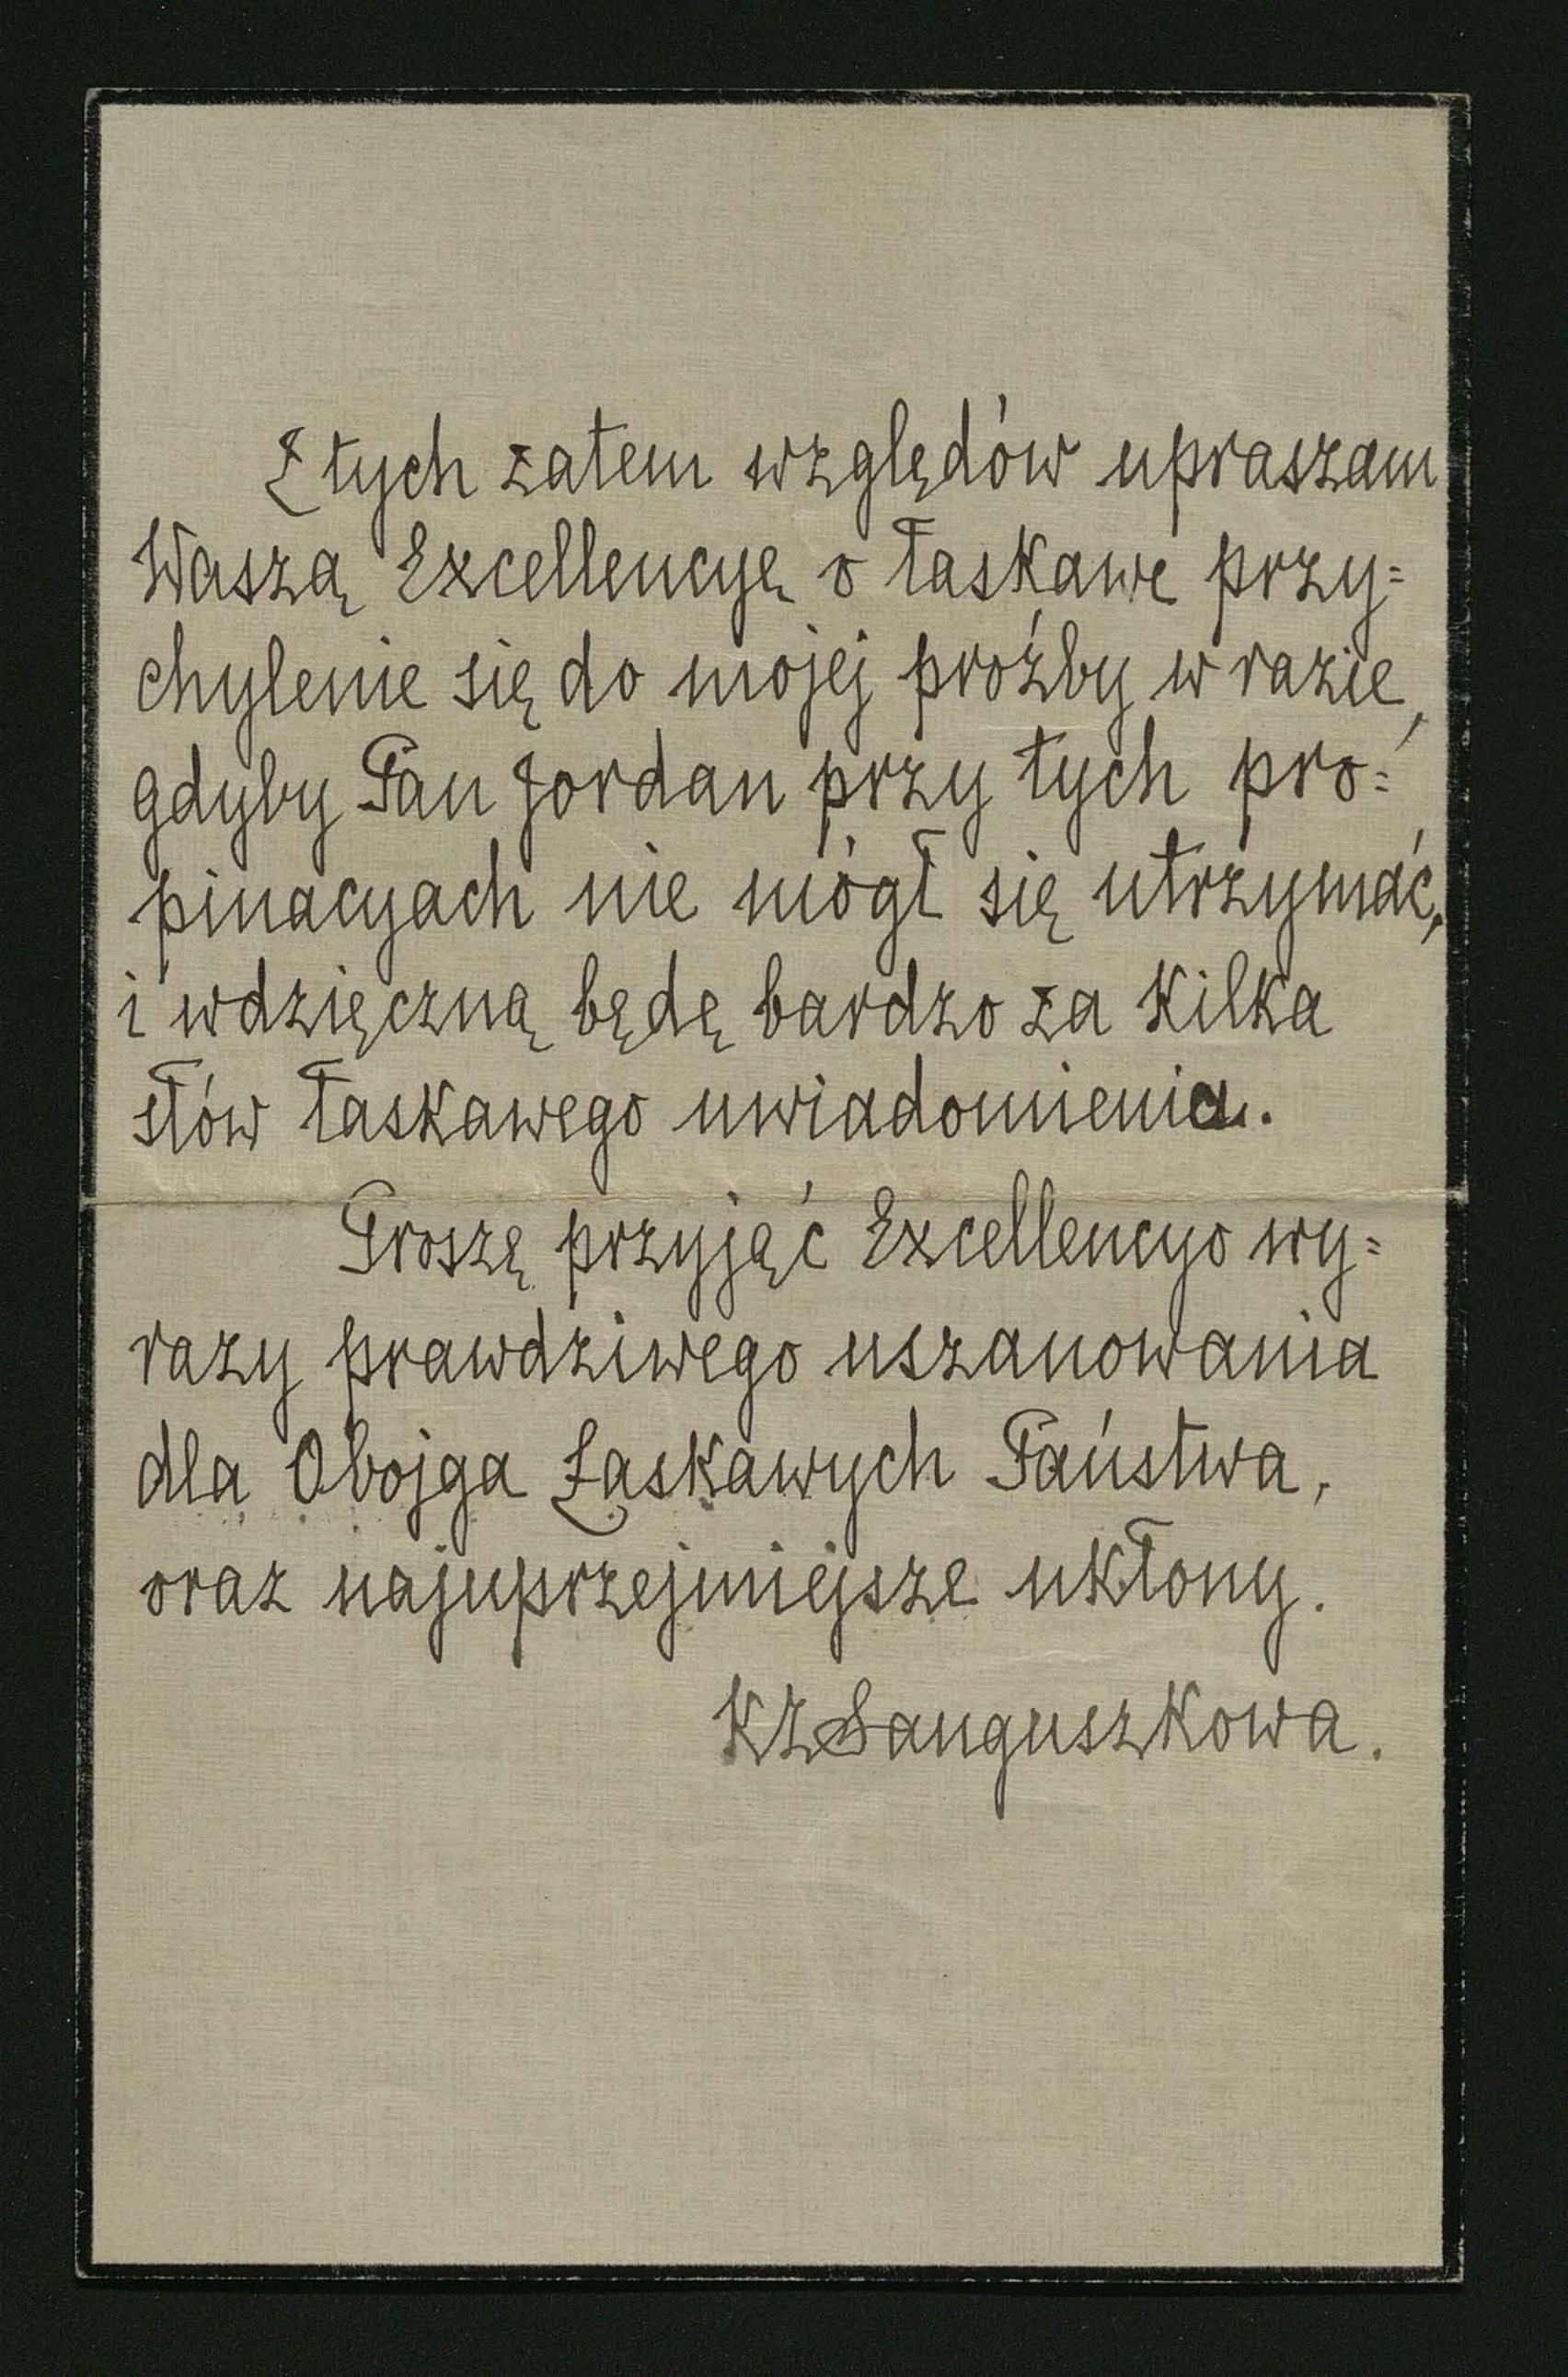 Z tych zatem względów upraszam
Waszą Excellencyę o łaskawe przy=
chylenie się do mojej proźby w razie,
gdyby Pan Jordan przy tych pro=
pinacyach nie mógł się utrzymać,
i wdzięczną będę bardzo za kilka
słów łaskawego uwiadomienia.
Proszę przyjęć Excellencyo wy=
razy prawdziwego uszanowania
dla Obojga Łaskawych Państwa,
oraz najuprzejmiejsze ukłony.
KZSanguszkowa.